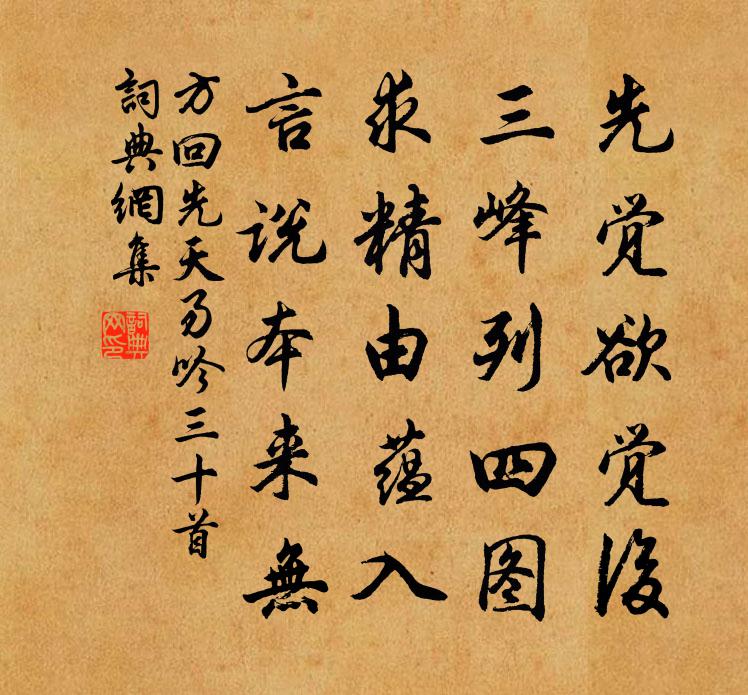 先觉欲觉後
三峰列四图
求精由蕴入
言说本来無
方回先天易吟三十首
詞典網集
詞典網印